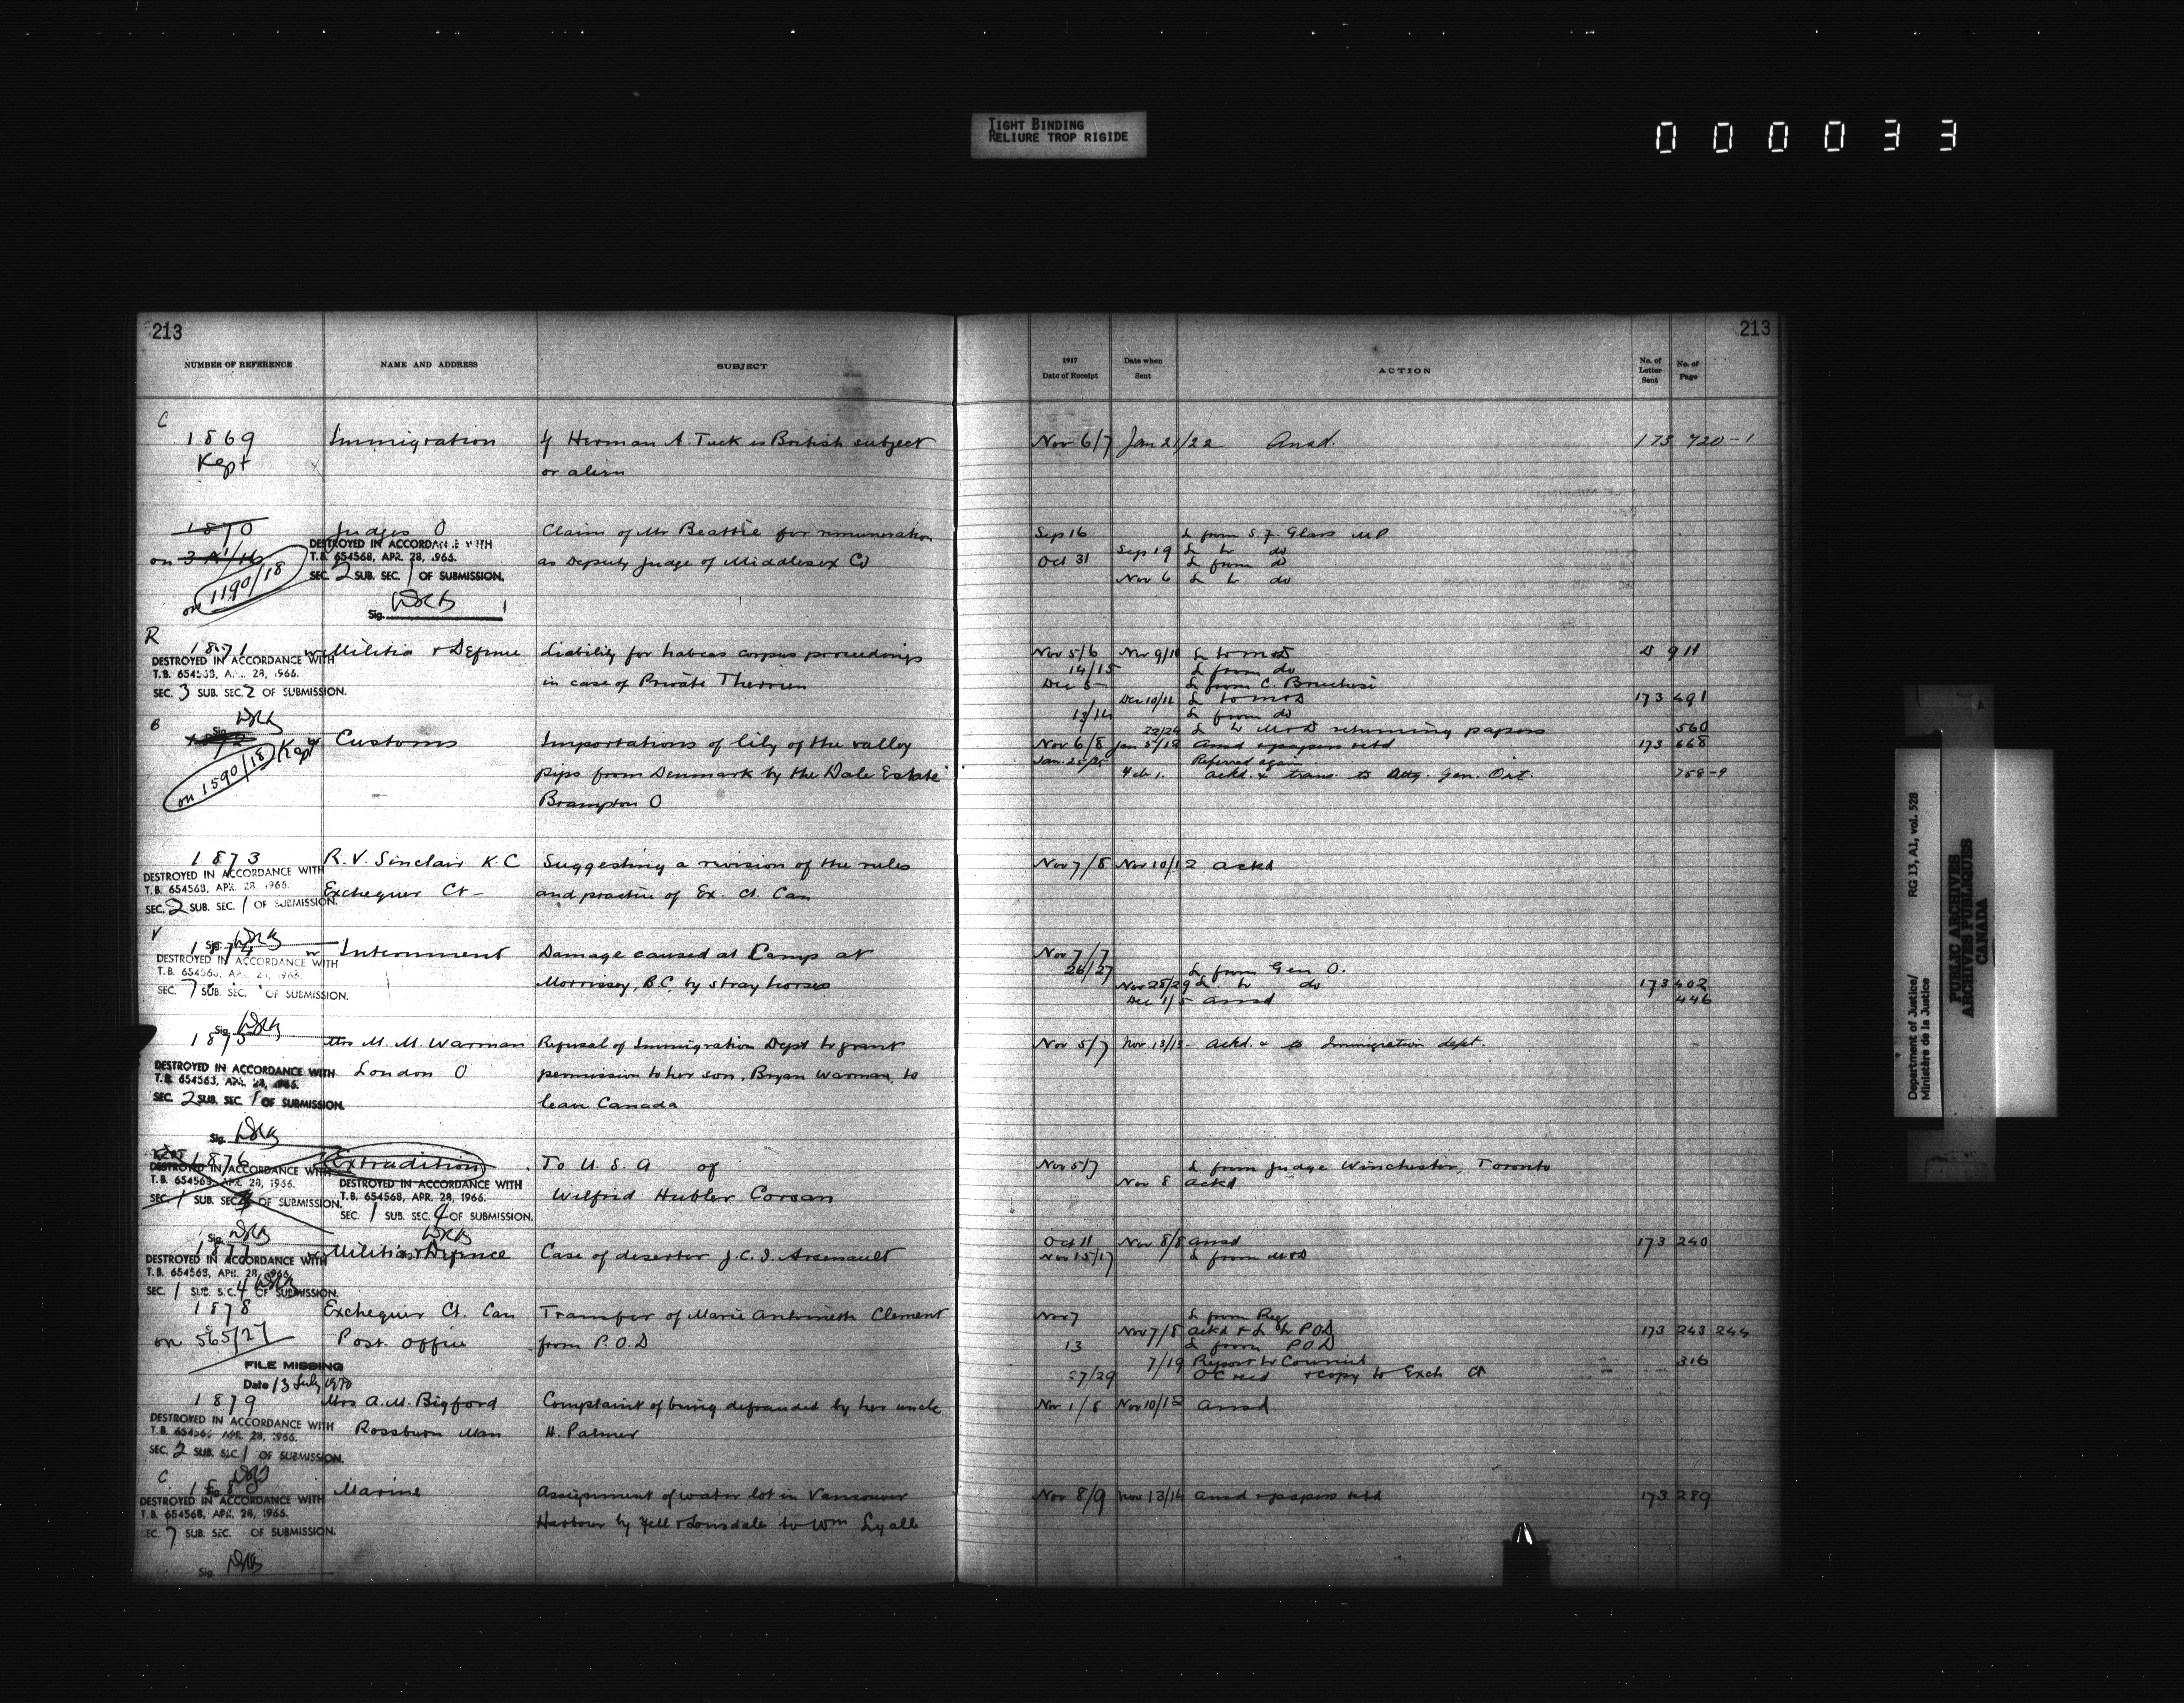 TIGHT BINDING
RELIURE TROP RIGIDE
000033
213
NUMBER OF REFERENCE NAME AND ADDRESS SUBJECT
C
1869 Immigration If Herman A. Tuck is British subject
Kept or alien
1870 Judges O Claim of Mr Beattie for remuneration
on
DESTROYED IN ACCORDANCE WITH
T.B. 654568, APR. 28, 1966.
as Deputy Judge of Middlesex Co
SEC. 2 SUB. SEC. 1 OF SUBMISSION.
on 1190/18
Sig.
R
1871 Militia & Defence Liability for habeas corpus proceedings
DESTROYED IN ACCORDANCE WITH
T.B. 654568, APR. 28, 1966.
in case of Private Therrien
SEC. 3 SUB. SEC. 2 OF SUBMISSION.
Sig.
B
Customs Importations of lily of the valley
on 1590/18 Kept
pips from Denmark by the Dale Estate
Brampton O
1873 R. V. Sinclair K.C Suggesting a revision of the rules
DESTROYED IN ACCORDANCE WITH
T.B. 654568, APR. 28, 1966.
Exchequer Ct - and practice of Ex. Ct. Can
SEC. 2 SUB. SEC. 1 OF SUBMISSION.
V
Sig.
1874 Internment Damage caused at Camp at
DESTROYED IN ACCORDANCE WITH
T.B. 654568, APR. 28, 1966.
Morrissey, B.C. by stray horses
SEC. 7 SUB. SEC. OF SUBMISSION.
Sig.
1875 Mrs M. M. Warman Refusal of Immigration Dept to grant
DESTROYED IN ACCORDANCE WITH London O permission to her son, Bryan Warman, to
T.B. 654568, APR. 28, 1966.
SEC. 2 SUB. SEC. 1 OF SUBMISSION. leave Canada
Sig.
KEPT
1876 Extradition To U.S.A of
DESTROYED IN ACCORDANCE WITH
T.B. 654568, APR. 28, 1966.
SEC. 1 SUB. SEC. OF SUBMISSION.
DESTROYED IN ACCORDANCE WITH
T.B. 654568, APR. 28, 1966.
SEC. 1 SUB. SEC. 4 OF SUBMISSION.
Wilfrid Hubler Corsan
Sig.
1877 Militia & Defence Case of deserter J. C. I. Arsenault
DESTROYED IN ACCORDANCE WITH
T.B. 654568, APR. 28, 1966.
SEC. 1 SUB. SEC. 4 OF SUBMISSION.
1878 Exchequer Ct. Can Transfer of Marie Antoinette Clement
on 565/27 Post Office from P.O.D
FILE MISSING
Date 13 July 1970
1879 Mrs A. M. Bigford Complaint of being defrauded by her uncle
DESTROYED IN ACCORDANCE WITH
T.B. 654568 APR. 28, 1966.
Rossburn Man H. Palmer
SEC. 2 SUB. SEC. 1 OF SUBMISSION.
C
Sig.
Marine Assignment of water lot in Vancouver
DESTROYED IN ACCORDANCE WITH
T.B. 654568, APR. 28, 1966.
Harbour by Fell & Lonsdale to Wm Lyall
SEC. 7 SUB. SEC. OF SUBMISSION.
Sig.
213
1917
Date of Receipt
Date when
Sent
ACTION
No. of
Letter
Sent
No. of
Page
Nov 6/7 Jan 21/22 Ansd. 175 720-1
Sep 16 L from S. F. Glass MP
Sep 19 L to do
Oct 31 L from do
Nov 6 L to do
Nov 5/6 Nov 9/10 L to M&D 911
14/15 L from do
Dec 5 L from C. Bruchesi
Dec 10/11 L to M&D 173 491
13/14 L from do
22/24 L to M&D returning papers 560
Nov 6/8 Jan 5/12 Ansd & papers retd 173 668
Jan. 25/25 Referred again
Feb 1. ackd. & trans. to Atty. Gen. Ont. 758-9
Nov 7/8 Nov 10/12 ackd
Nov 7/7
26/27 L from Gen O.
Nov 28/29 L to do 173 402
Dec 1/5 ansd 446
Nov 5/7 Nov. 13/13 - ackd. & to Immigration dept.
Nov 5/7 L from Judge Winchester, Toronto
Nov 8 ackd
Oct 11 Nov 8/8 ansd 173 240
Nov 15/17 L from M&D
Nov 7 L from Reg
Nov 7/8 ackd & L to POD 173 243 244
13 L from POD
7/19 Report to Council 316
27/29 OC recd & copy to Exch Ct
Nov 1/8 Nov 10/12 ansd
Nov 8/9 Nov 13/14 ansd & papers retd 173 289
Department of Justice/
Ministère de la Justice
RG 13, A1, vol. 528
PUBLIC ARCHIVES
ARCHIVES PUBLIQUES
CANADA